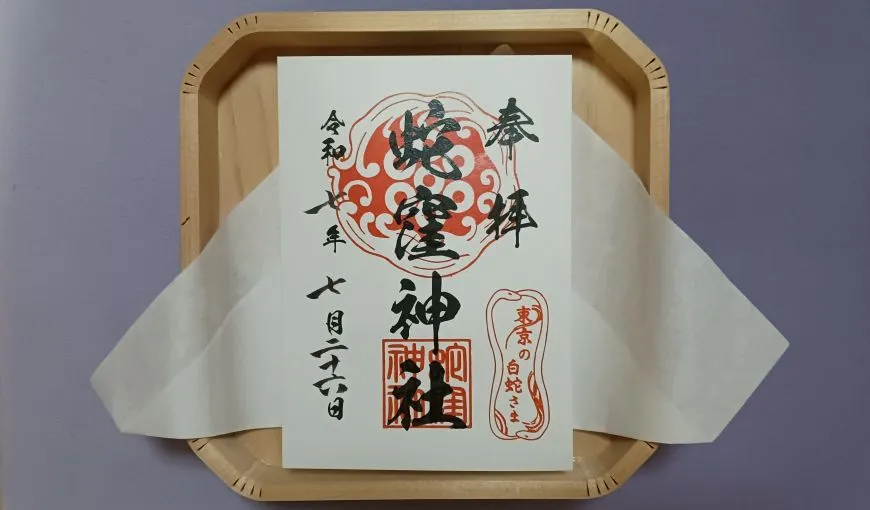 奉拝
蛇窪神社
令和七年七月二十六日
東京の
白蛇さま
蛇窪
神社